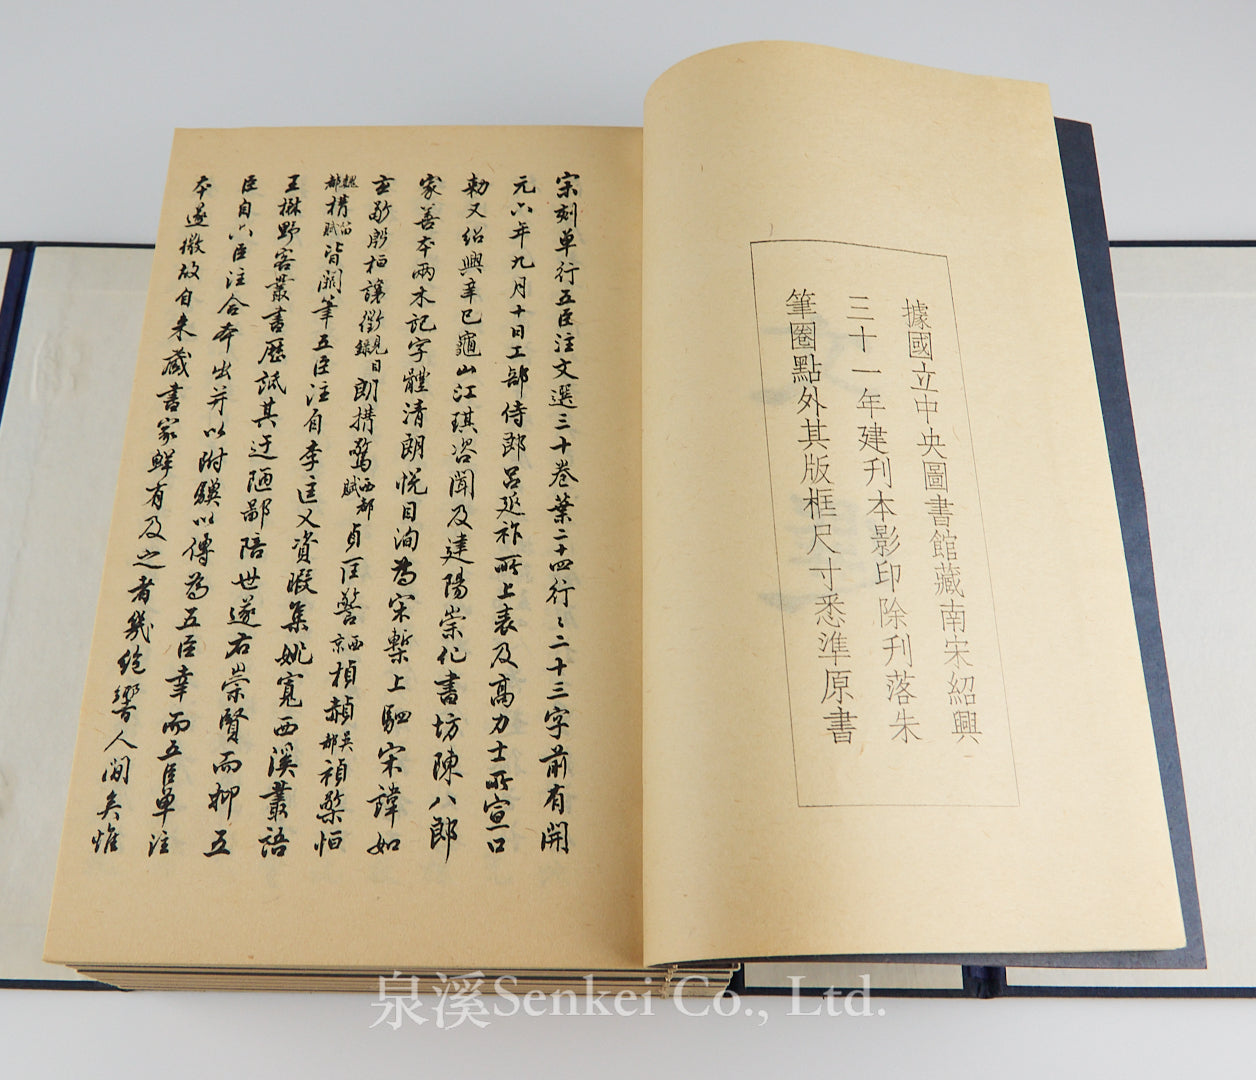 據國立中央圖書館藏南宋紹興
三十一年建刊本影印除刊落朱
筆圈點外其版框尺寸悉準原書
宋刻單行五臣注文選三十卷葉二十四行〻二十三字前有開
元六年九月十日工部侍郎呂延祚所上表及高力士所宣口
勅又紹興辛巳龜山江琪咨聞及建陽崇化書坊陳八郎
家善本兩木記字體清朗悅目洵為宋槧上駟宋諱如
玄敬殷桓讓徵觀見目錄朗搆驚西都賦貞匡警西京楨赬吳都禎檠恒
魏都搆笛賦皆闕筆五臣注自李匡乂資暇集姚寬西溪叢語
王楙野客叢書歷詆其迂陋鄙陪世遂右崇賢而抑五
臣自六臣注合本出并以附驥以傳為五臣幸而五臣單注
本遂微故自来藏書家鮮有及之者幾絕響人間矣惟
泉溪Senkei Co., Ltd.